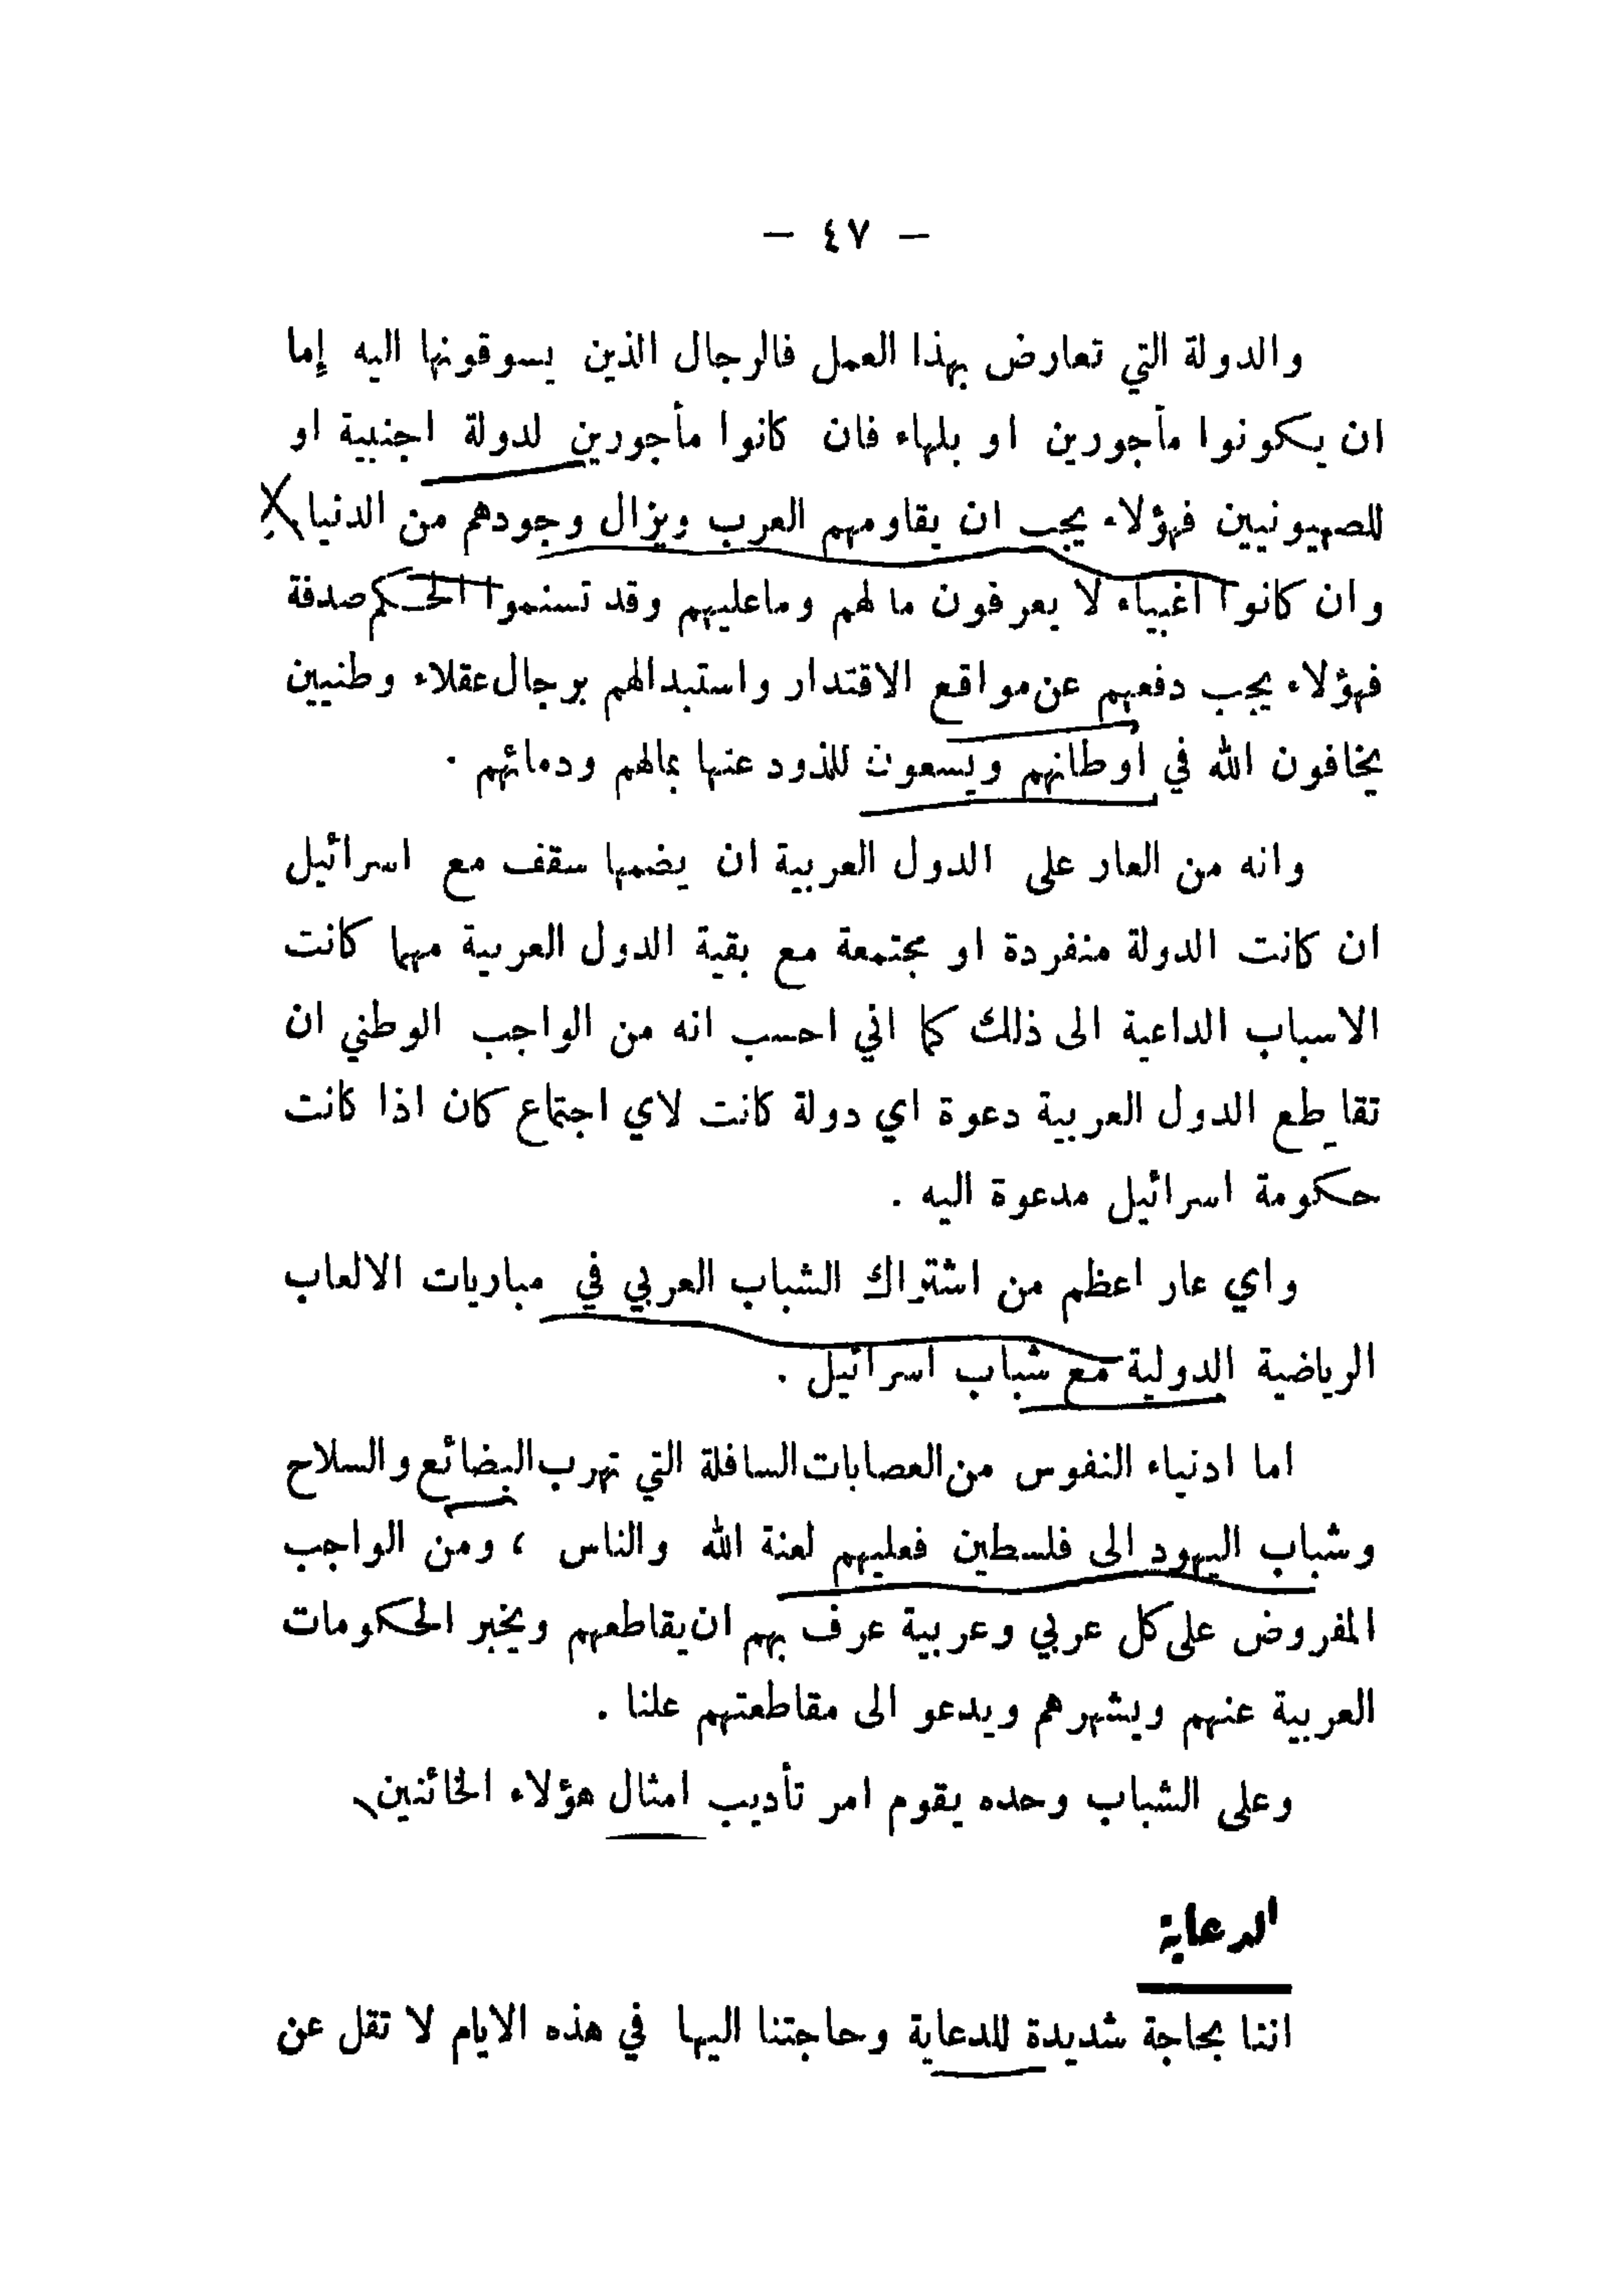 — ٤٧ —
والدولة التي تعارض بهذا العمل فالرجال الذين يسوقونها اليه إما
ان يكونوا مأجورين او بلهاء فان كانوا مأجورين لدولة اجنبية او
للصهيونيين فهؤلاء يجب ان يقاومهم العرب ويزال وجودهم من الدنيا
وان كانوا اغبياء لا يعرفون ما لهم وماعليهم وقد تسنموا الحكم صدفة
فهؤلاء يجب دفعهم عن مواقع الاقتدار واستبدالهم برجال عقلاء وطنيين
يخافون الله في اوطانهم ويسعون للذود عنها بمالهم ودمائهم .
وانه من العار على الدول العربية ان يضمها سقف مع اسرائيل
ان كانت الدولة منفردة او مجتمعة مع بقية الدول العربية مهما كانت
الاسباب الداعية الى ذلك كما اني احسب انه من الواجب الوطني ان
تقاطع الدول العربية دعوة اي دولة كانت لاي اجتماع كان اذا كانت
حكومة اسرائيل مدعوة اليه .
واي عار اعظم من اشتراك الشباب العربي في مباريات الالعاب
الرياضية الدولية مع شباب اسرائيل .
اما ادنياء النفوس من العصابات السافلة التي تهرب البضائع والسلاح
وشباب اليهود الى فلسطين فعليهم لعنة الله والناس ، ومن الواجب
المفروض على كل عربي وعربية عرف بهم ان يقاطعهم ويخبر الحكومات
العربية عنهم ويشهرهم ويدعو الى مقاطعتهم علنا .
وعلى الشباب وحده يقوم امر تأديب امثال هؤلاء الخائنين
الدعاية
اننا بحاجة شديدة للدعاية وحاجتنا اليها في هذه الايام لا تقل عن